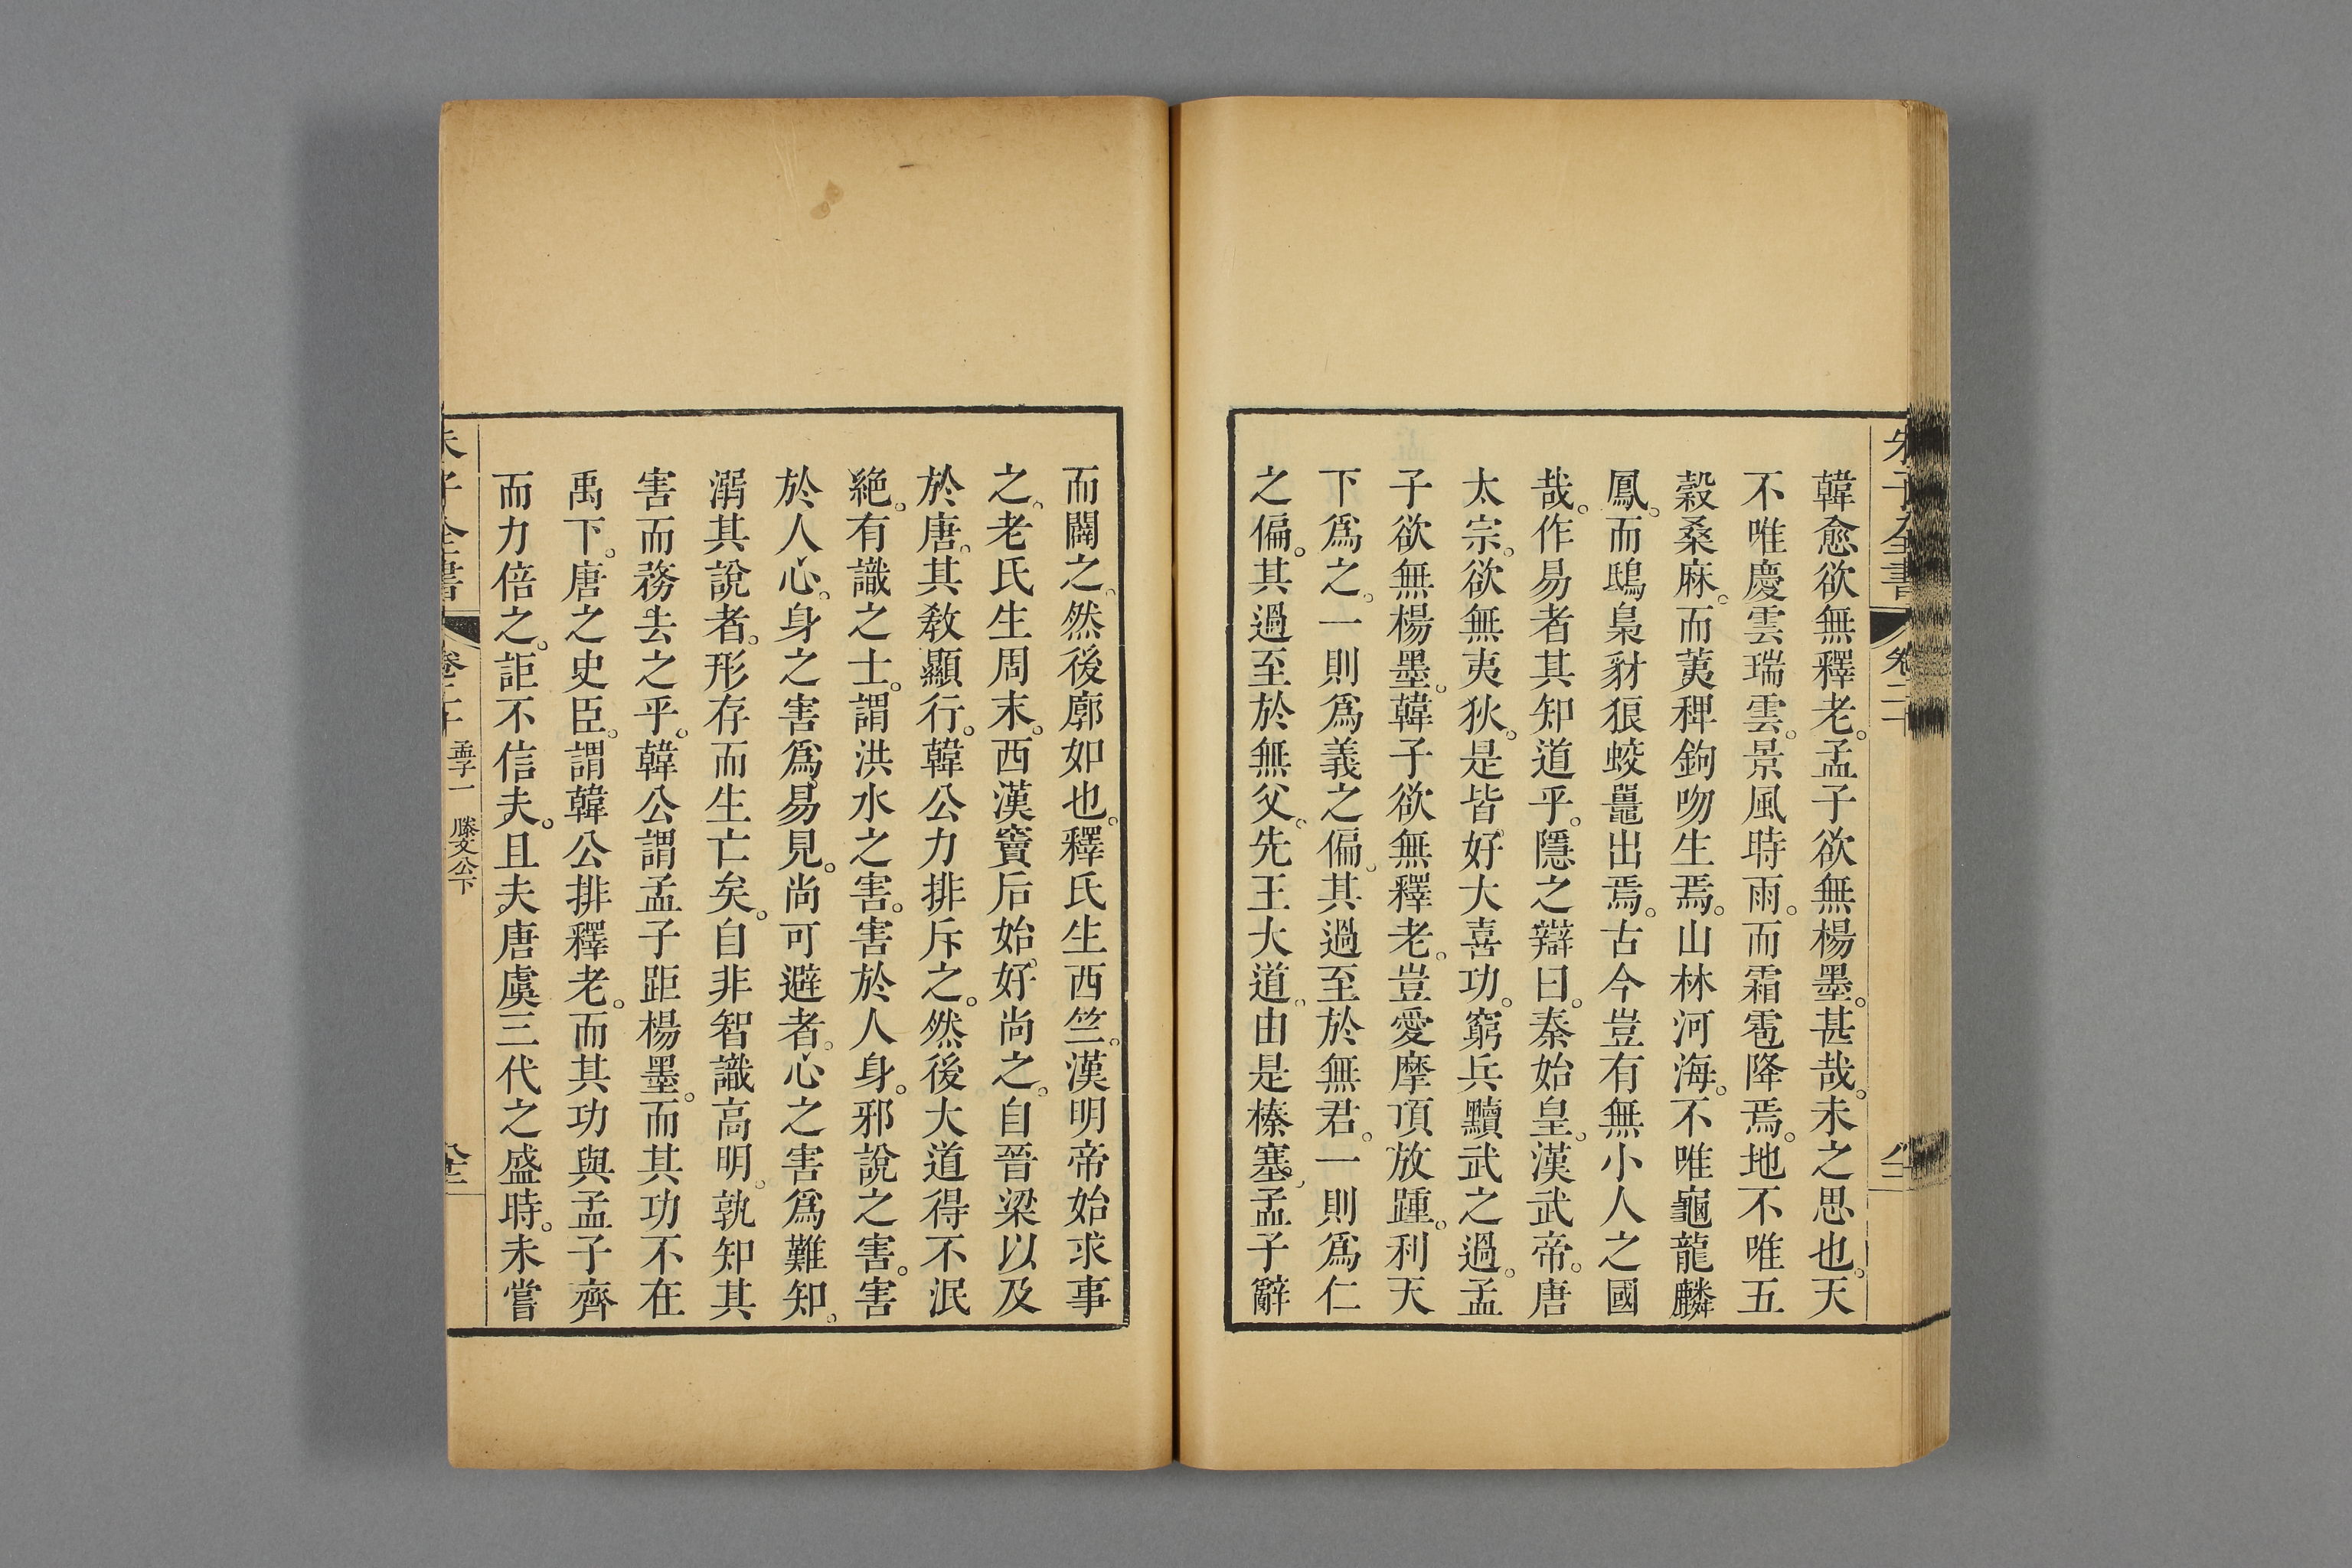 韓愈欲無釋老。孟子欲無楊墨。甚哉。未之思也。天
不唯慶雲瑞雲。景風時雨。而霜雹降焉。地不唯五
穀桑麻。而荑稗鉤吻生焉。山林河海。不唯龜龍麟
鳳。而鴟梟豺狼蛟鼉出焉。古今豈有無小人之國
哉。作易者其知道乎。隱之辯曰。秦始皇。漢武帝。唐
太宗。欲無夷狄。是皆好大喜功。窮兵黷武之過。孟
子欲無楊墨。韓子欲無釋老。豈愛摩頂放踵。利天
下爲之。一則爲義之偏。其過至於無君。一則爲仁
之偏。其過至於無父。先王大道。由是榛塞。孟子辭
而闢之。然後廓如也。釋氏生西竺。漢明帝始求事
之。老氏生周末。西漢竇后始好尚之。自晉梁以及
於唐。其敎顯行。韓公力排斥之。然後大道得不泯
絕。有識之士。謂洪水之害。害於人身。邪說之害。害
於人心。身之害爲易見。尚可避者。心之害爲難知。
溺其說者。形存而生亡矣。自非智識高明。孰知其
害而務去之乎。韓公謂孟子距楊墨。而其功不在
禹下。唐之史臣。謂韓公排釋老。而其功與孟子齊
而力倍之。詎不信夫。且夫唐虞三代之盛時。未嘗
朱子全書 卷二十 孟子一 滕文公下